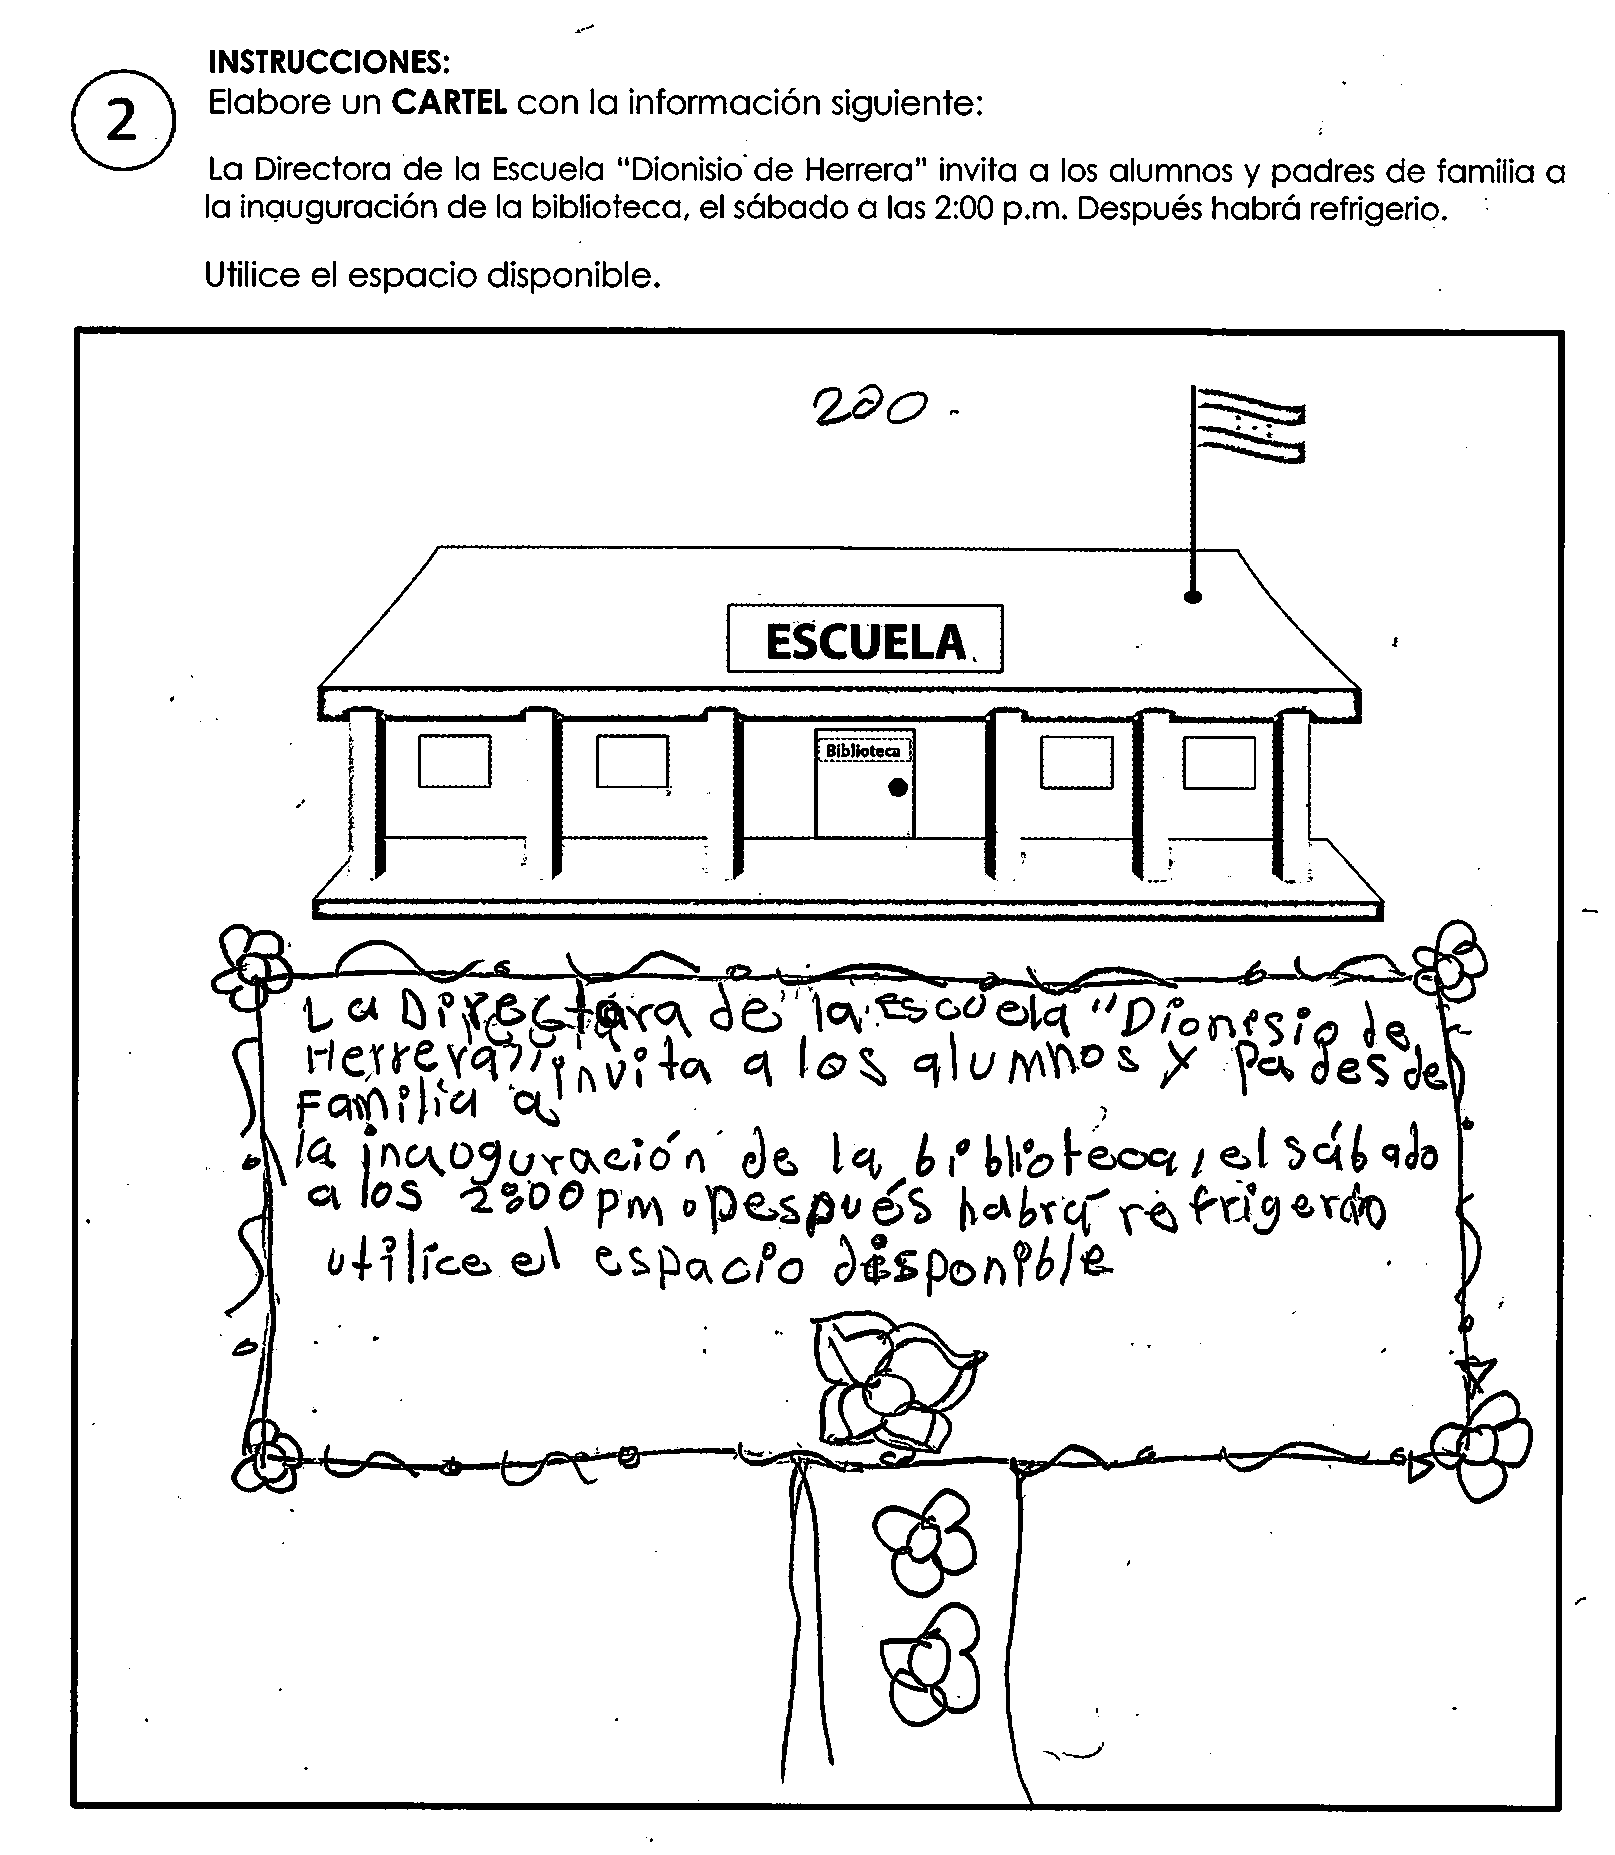 INSTRUCCIONES:
2
Elabore un CARTEL con la información siguiente:
La Directora de la Escuela "Dionisio de Herrera" invita a los alumnos y padres de familia a
la inauguración de la biblioteca, el sábado a las 2:00 p.m. Después habrá refrigerio.
Utilice el espacio disponible.
200
ESCUELA
Biblioteca
La Directora de la Escuela "Dionisio de
Herrera" invita a los alumnos y pa des de
Familia a
la inauguración de la biblioteca, el sábado
a los 2:00 pm. Después habrá refrigerio
utilice el espacio disponible